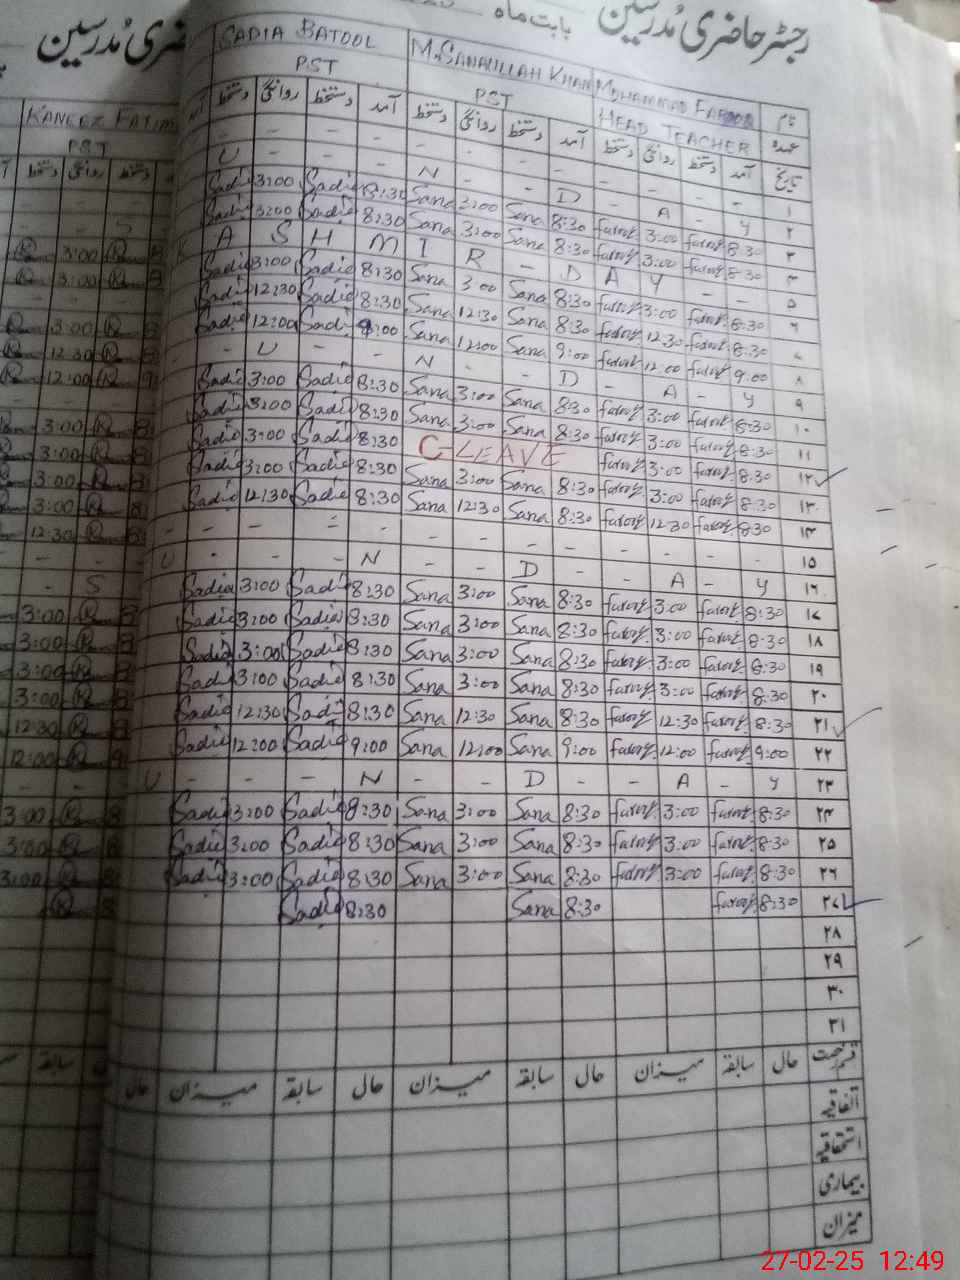 رجسٹر حاضری مدرسین بابت ماہ
حاضری مدرسین
نام MOHAMMAD FAROOQ M.SANAULLAH KHAN SADIA BATOOL
عہدہ HEAD TEACHER PST PST
تاریخ آمد دستخط روانگی دستخط آمد دستخط روانگی دستخط آمد دستخط روانگی دستخط
KANEEZ FATIM
PST
دستخط روانگی دستخط
۱ - - - - - - - - - - - -
۲ S U N D A Y
۳ 8:30 Farooq 3:00 Farooq 8:30 Sana 3:00 Sana 8:30 Sadia 3:00 Sadia
۴ 8:30 Farooq 3:00 Farooq 8:30 Sana 3:00 Sana 8:30 Sadia 3:00 Sadia
۵ KASHMIR - DAY - -
۶ 8:30 Farooq 3:00 Farooq 8:30 Sana 3:00 Sana 8:30 Sadia 3:00 Sadia
۷ 8:30 Farooq 12:30 Farooq 8:30 Sana 12:30 Sana 8:30 Sadia 12:30 Sadia
۸ 9:00 Farooq 12:00 Farooq 9:00 Sana 12:00 Sana 9:00 Sadia 12:00 Sadia
۹ - U - - N - - D - A - Y
۱۰ 8:30 Farooq 3:00 Farooq 8:30 Sana 3:00 Sana 8:30 Sadia 3:00 Sadia
۱۱ 8:30 Farooq 3:00 Farooq 8:30 Sana 3:00 Sana 8:30 Sadia 3:00 Sadia
۱۲ 8:30 Farooq 3:00 Farooq C-LEAVE 8:30 Sadia 3:00 Sadia
۱۳ 8:30 Farooq 3:00 Farooq 8:30 Sana 3:00 Sana 8:30 Sadia 3:00 Sadia
۱۴ 8:30 Farooq 12:30 Farooq 8:30 Sana 12:30 Sana 8:30 Sadia 12:30 Sadia
۱۵ - - - - - - - - - - - -
۱۶ S U - - N - - D - - A - Y
۱۷ 8:30 Farooq 3:00 Farooq 8:30 Sana 3:00 Sana 8:30 Sadia 3:00 Sadia
۱۸ 8:30 Farooq 3:00 Farooq 8:30 Sana 3:00 Sana 8:30 Sadia 3:00 Sadia
۱۹ 8:30 Farooq 3:00 Farooq 8:30 Sana 3:00 Sana 8:30 Sadia 3:00 Sadia
۲۰ 8:30 Farooq 3:00 Farooq 8:30 Sana 3:00 Sana 8:30 Sadia 3:00 Sadia
۲۱ 8:30 Farooq 12:30 Farooq 8:30 Sana 12:30 Sana 8:30 Sadia 12:30 Sadia
۲۲ 9:00 Farooq 12:00 Farooq 9:00 Sana 12:00 Sana 9:00 Sadia 12:00 Sadia
۲۳ U - - N - - D - - A - Y
۲۴ 8:30 Farooq 3:00 Farooq 8:30 Sana 3:00 Sana 8:30 Sadia 3:00 Sadia
۲۵ 8:30 Farooq 3:00 Farooq 8:30 Sana 3:00 Sana 8:30 Sadia 3:00 Sadia
۲۶ 8:30 Farooq 3:00 Farooq 8:30 Sana 3:00 Sana 8:30 Sadia 3:00 Sadia
۲۷ 8:30 Farooq 8:30 Sana 8:30 Sadia
۲۸
۲۹
۳۰
۳۱
قسم رخصت حال سابقہ میزان حال سابقہ میزان حال سابقہ میزان حال
اتفاقیہ
استحقاقیہ
بیماری
میزان
27-02-25 12:49